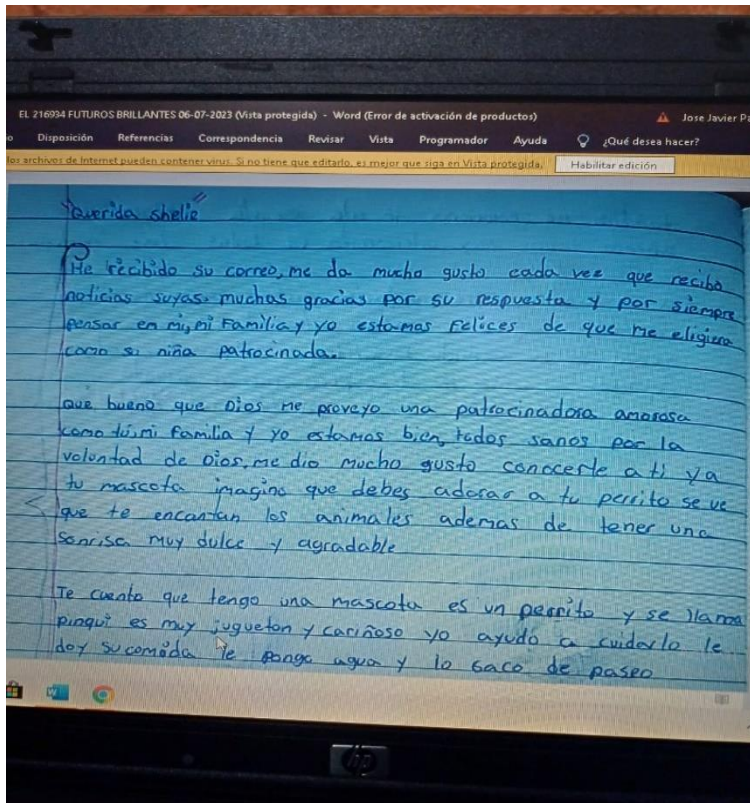 EL 216934 FUTUROS BRILLANTES 06-07-2023 (Vista protegida) - Word (Error de activación de productos)
Jose Javier P
o Disposición Referencias Correspondencia Revisar Vista Programador Ayuda ¿Qué desea hacer?
los archivos de Internet pueden contener virus. Si no tiene que editarlo, es mejor que siga en Vista protegida. Habilitar edición
"Querida shelie"
He recibido su correo, me da mucho gusto cada vez que recibo
noticias suyas. muchas gracias por su respuesta y por siempre
pensar en mi, mi Familia y yo estamos Felices de que me eligiera
como su niña patrocinada.
que bueno que Dios me proveyo una patrocinadora amorosa
como tú, mi familia y yo estamos bien, todos sanos por la
voluntad de Dios, me dio mucho gusto conocerte a ti y a
tu mascota imagino que debes adorar a tu perrito se ve
que te encantan los animales ademas de tener una
sonrisa muy dulce y agradable
Te cuento que tengo una mascota es un perrito y se llama
pinqui es muy jugueton y cariñoso yo ayudo a cuidarlo le
doy su comida le pongo agua y lo saco de paseo
hp